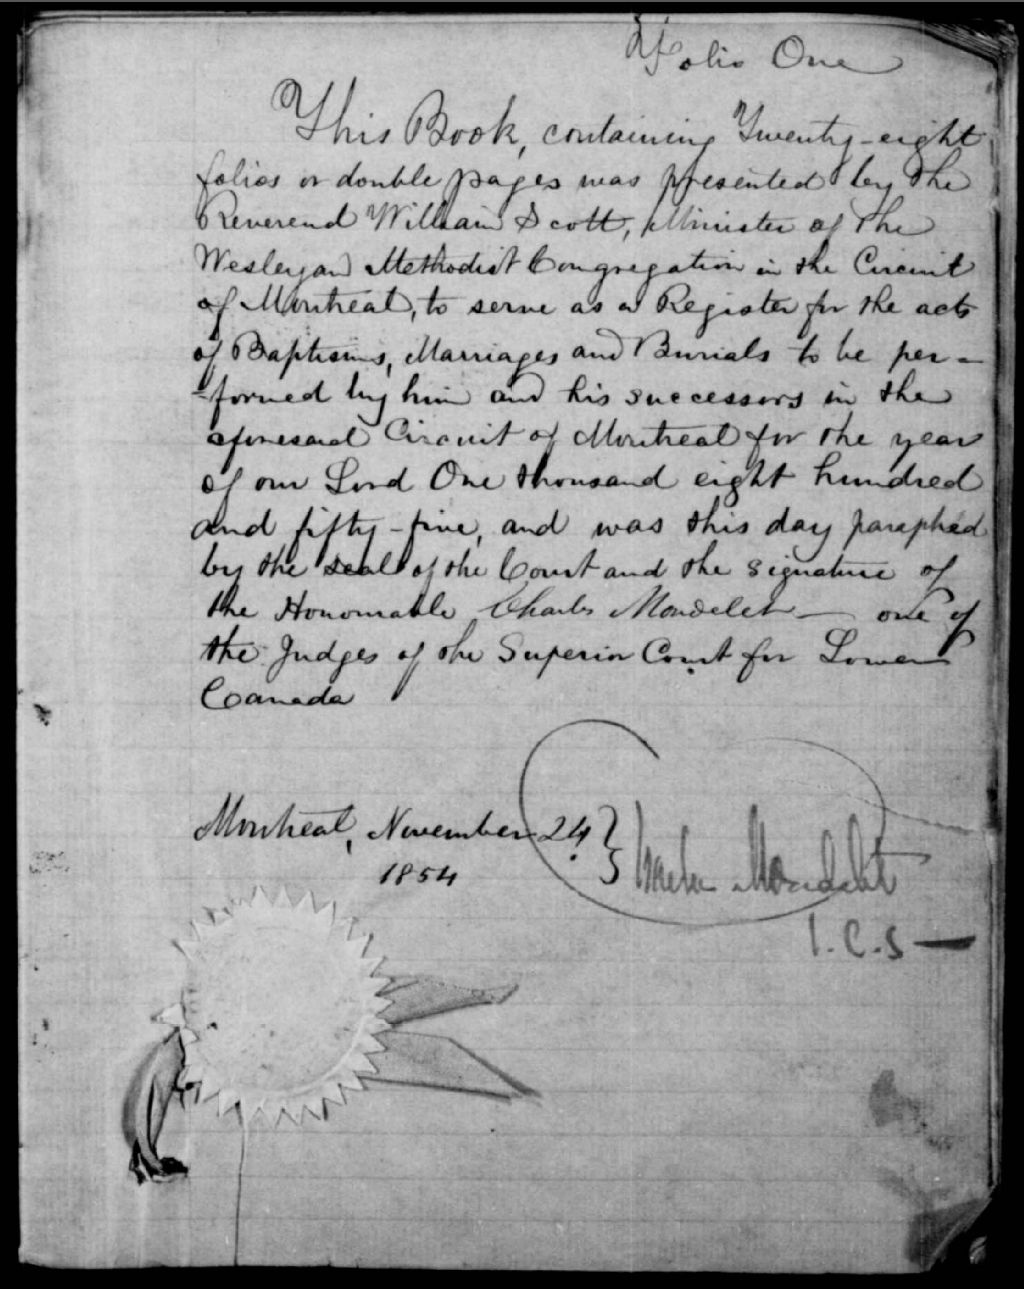 Folio One
This Book, containing Twenty-eight
folios or double pages was presented by the
Reverend William Scott, Minister of the
Wesleyan Methodist Congregation in the Circuit
of Montreal, to serve as a Register for the acts
of Baptisms, Marriages and Burials to be per-
-formed by him and his successors in the
aforesaid Circuit of Montreal for the year
of our Lord One thousand eight hundred
and fifty-five, and was this day paraphed
by the seal of the Court and the signature of
the Honourable Charles Mondelet — one of
the Judges of the Superior Court for Lower
Canada
Montreal, November 24
1854
Charles Mondelet
J.C.S —